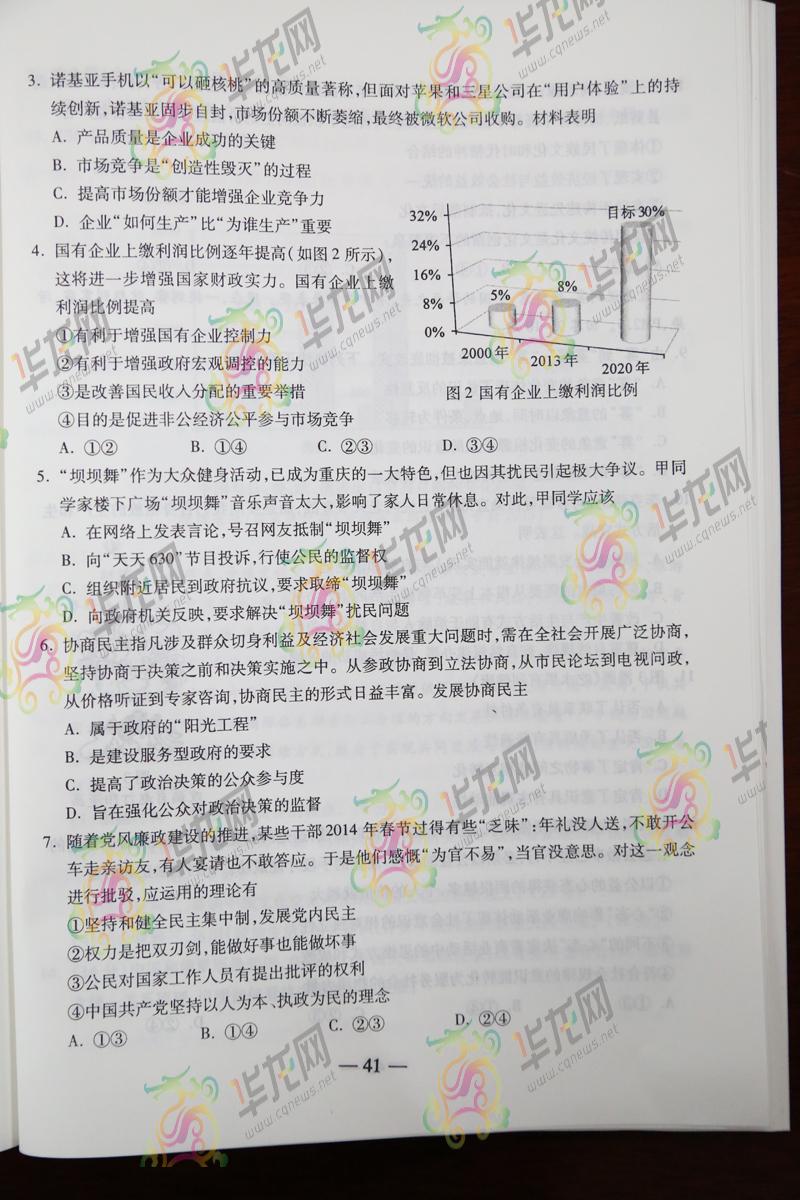 3. 诺基亚手机以“可以砸核桃”的高质量著称,但面对苹果和三星公司在“用户体验”上的持
续创新,诺基亚固步自封,市场份额不断萎缩,最终被微软公司收购。材料表明
A. 产品质量是企业成功的关键
B. 市场竞争是“创造性毁灭”的过程
C. 提高市场份额才能增强企业竞争力
D. 企业“如何生产”比“为谁生产”重要
4. 国有企业上缴利润比例逐年提高(如图2所示),
这将进一步增强国家财政实力。国有企业上缴
利润比例提高
①有利于增强国有企业控制力
②有利于增强政府宏观调控的能力
③是改善国民收入分配的重要举措
④目的是促进非公经济公平参与市场竞争
A. ①② B. ①④ C. ②③ D. ③④
32%
24%
16%
8%
0%
5%
8%
目标30%
2000年 2013年 2020年
图2 国有企业上缴利润比例
5. “坝坝舞”作为大众健身活动,已成为重庆的一大特色,但也因其扰民引起极大争议。甲同
学家楼下广场“坝坝舞”音乐声音太大,影响了家人日常休息。对此,甲同学应该
A. 在网络上发表言论,号召网友抵制“坝坝舞”
B. 向“天天630”节目投诉,行使公民的监督权
C. 组织附近居民到政府抗议,要求取缔“坝坝舞”
D. 向政府机关反映,要求解决“坝坝舞”扰民问题
6. 协商民主指凡涉及群众切身利益及经济社会发展重大问题时,需在全社会开展广泛协商,
坚持协商于决策之前和决策实施之中。从参政协商到立法协商,从市民论坛到电视问政,
从价格听证到专家咨询,协商民主的形式日益丰富。发展协商民主
A. 属于政府的“阳光工程”
B. 是建设服务型政府的要求
C. 提高了政治决策的公众参与度
D. 旨在强化公众对政治决策的监督
7. 随着党风廉政建设的推进,某些干部2014年春节过得有些“乏味”:年礼没人送,不敢开公
车走亲访友,有人宴请也不敢答应。于是他们感慨“为官不易”,当官没意思。对这一观念
进行批驳,应运用的理论有
①坚持和健全民主集中制,发展党内民主
②权力是把双刃剑,能做好事也能做坏事
③公民对国家工作人员有提出批评的权利
④中国共产党坚持以人为本、执政为民的理念
A. ①③ B. ①④ C. ②③ D. ②④
— 41 —
华龙网
www.cqnews.net